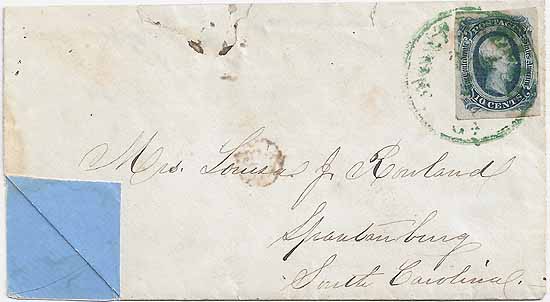 POSTAGE
10 CENTS
Mrs. Louisa J. Rowland
Spartanburg
South Carolina.